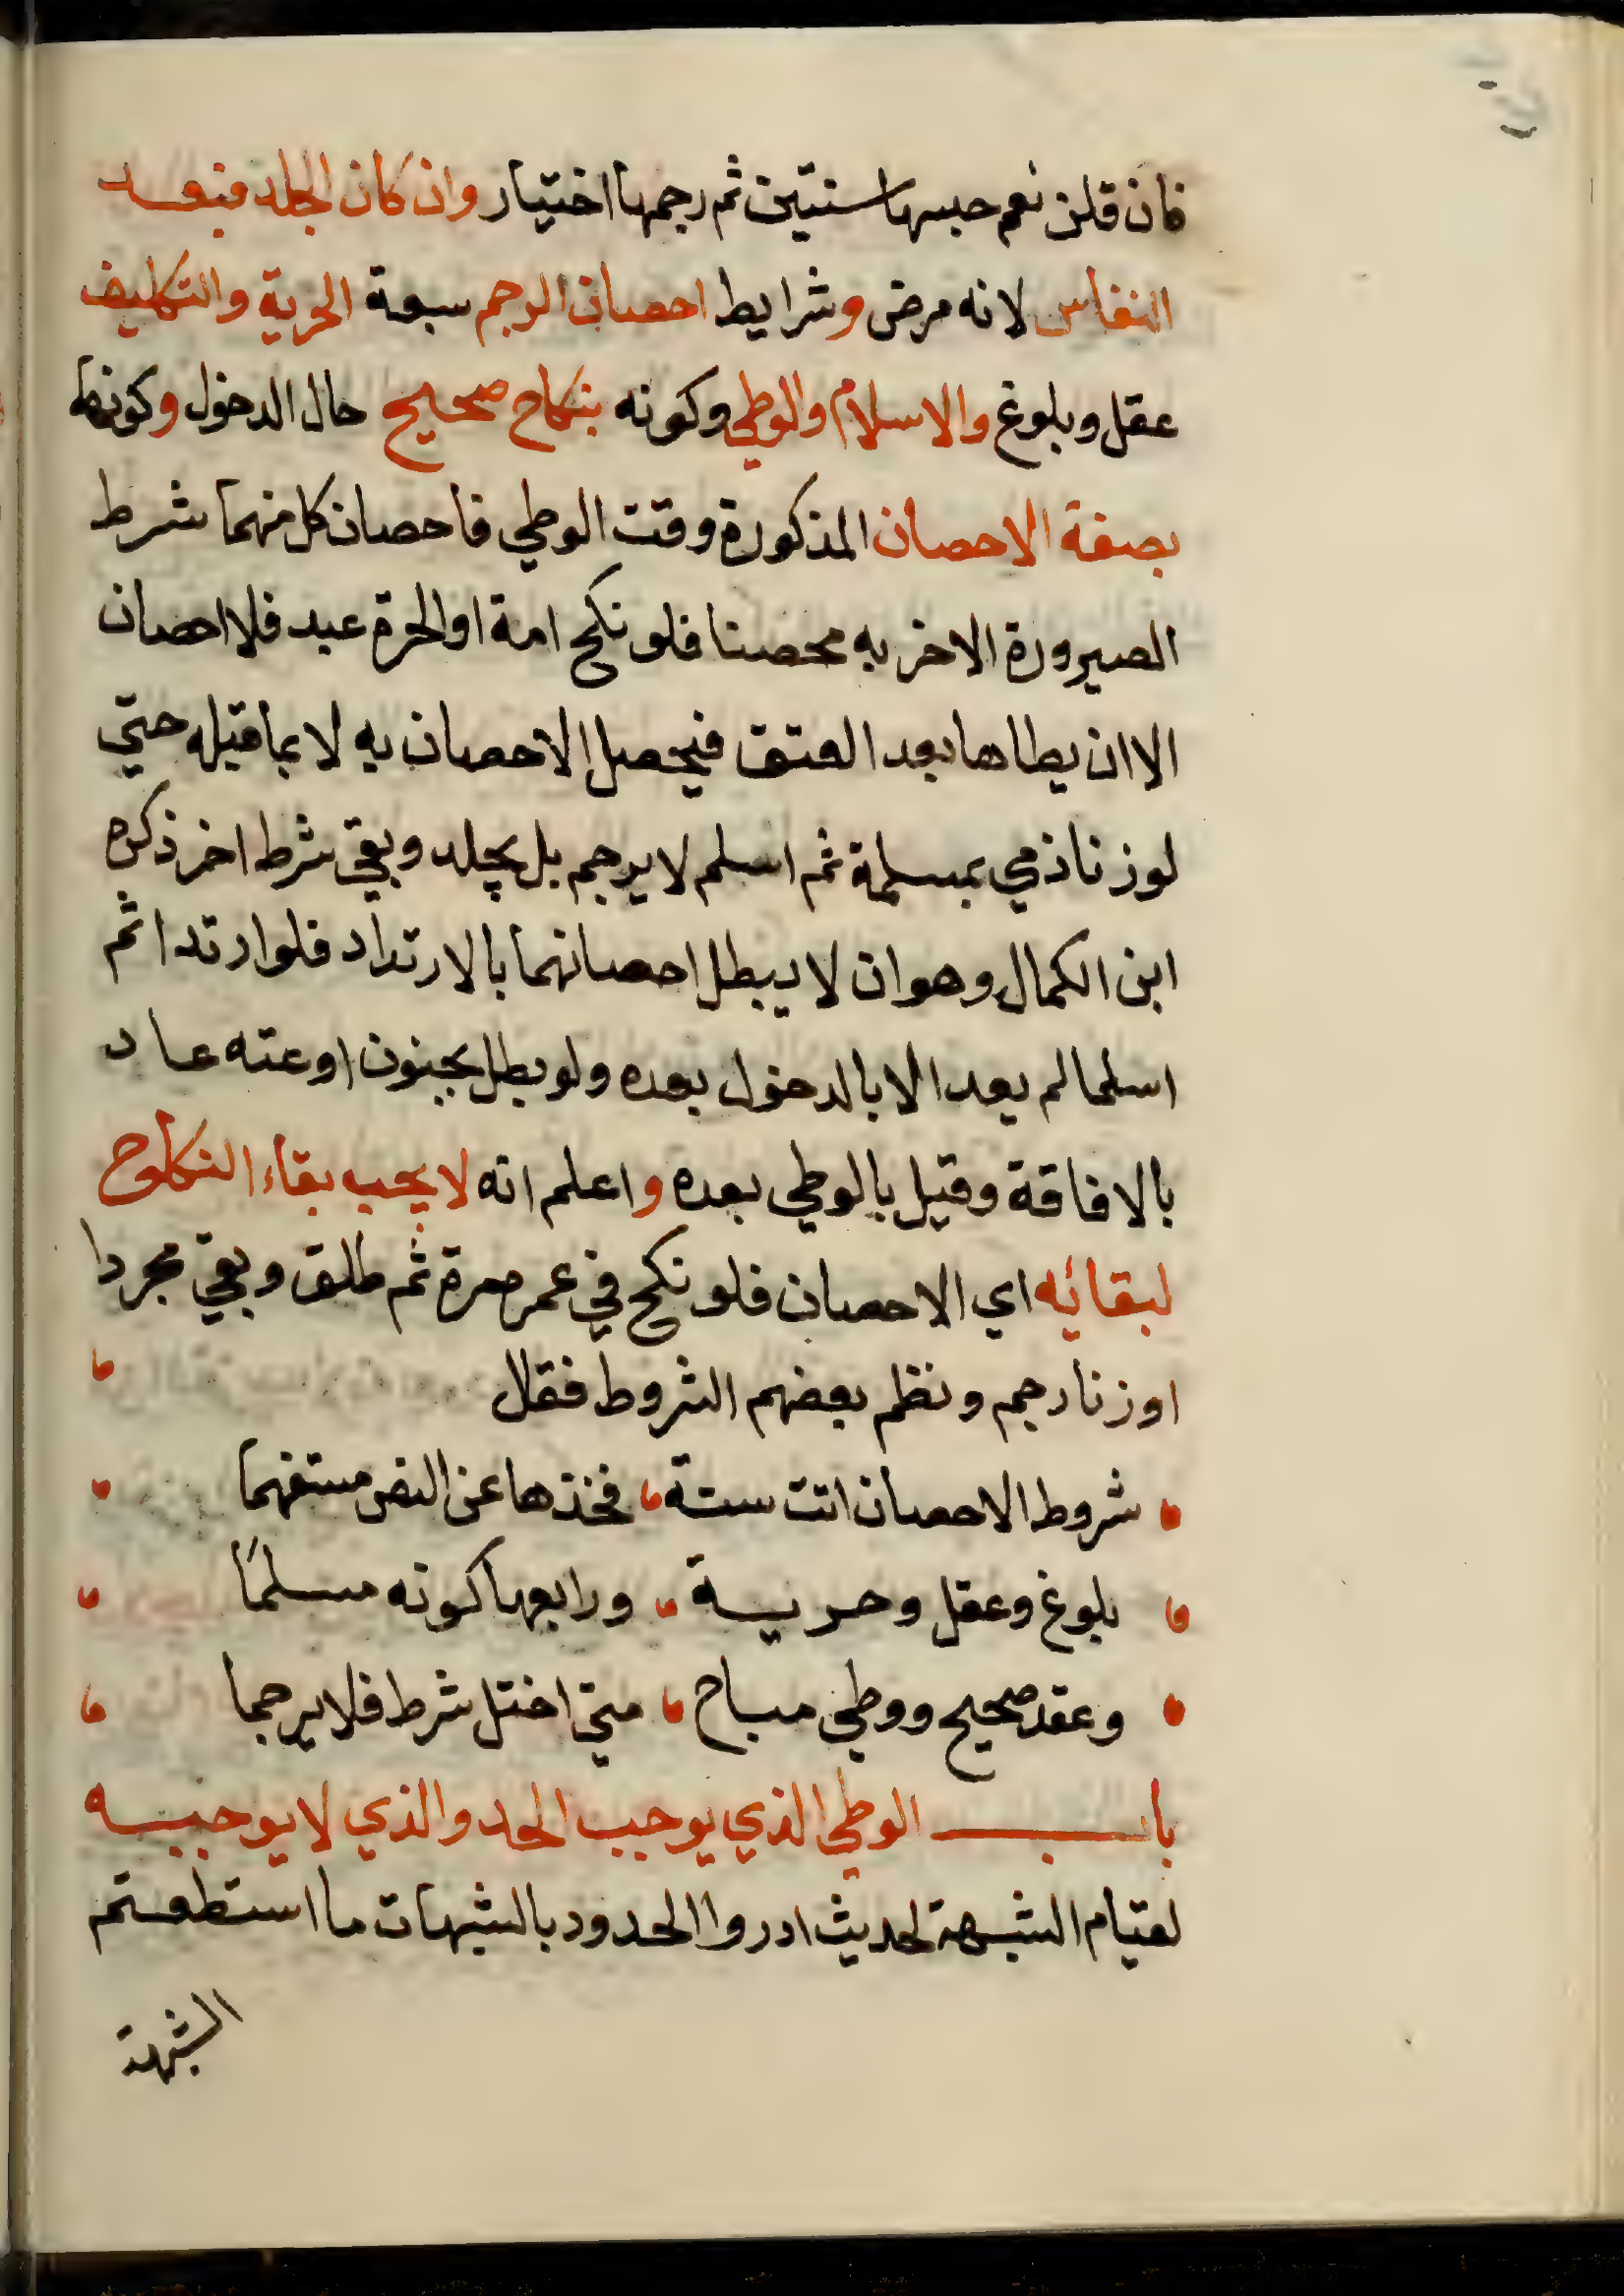 فان قلن نعم حبسها سنتين ثم رجمها اختيار وان كان الجلد فبعد
النفاس لانه مرض وشرايط احصان الرجم سبعة الحرية والتكليف
عقل وبلوغ والاسلام والوطي وكونه بنكاح صحيح حال الدخول وكونهما
بصفة الاحصان المذكورة وقت الوطي فاحصان كل منهما شرط
الصيرورة الاخر به محصنا فلو نكح امة او الحرة عبد فلا احصان
الا ان يطاها بعد العتق فيحصل الاحصان به لا بما قبله حتي
لو زنا ذمي بمسلمة ثم اسلم لا يرجم بل يجلد وبقي شرط اخر ذكره
ابن الكمال وهو ان لا يبطل احصانهما بالارتداد فلو ارتدا ثم
اسلما لم يعد الا بالدخول بعده ولو بطل بجنون او عته عاد
بالافاقة وقيل بالوطي بعده واعلم انه لا يجب بقاء النكاح
لبقائه اي الاحصان فلو نكح في عمره مرة ثم طلق وبقي مجردا
او زنا رجم ونظم بعضهم الشروط فقال
شروط الاحصان اتت ستة فخذها عن النص مستفهما
بلوغ وعقل وحرية ورابعها كونه مسلمًا
وعقد صحيح ووطي مباح متي اختل شرط فلا يرجما
باب الوطي الذي يوجب الحد والذي لا يوجبه
لقيام الشبهة لحديث ادروا الحدود بالشبهات ما استطعتم
الشبهة